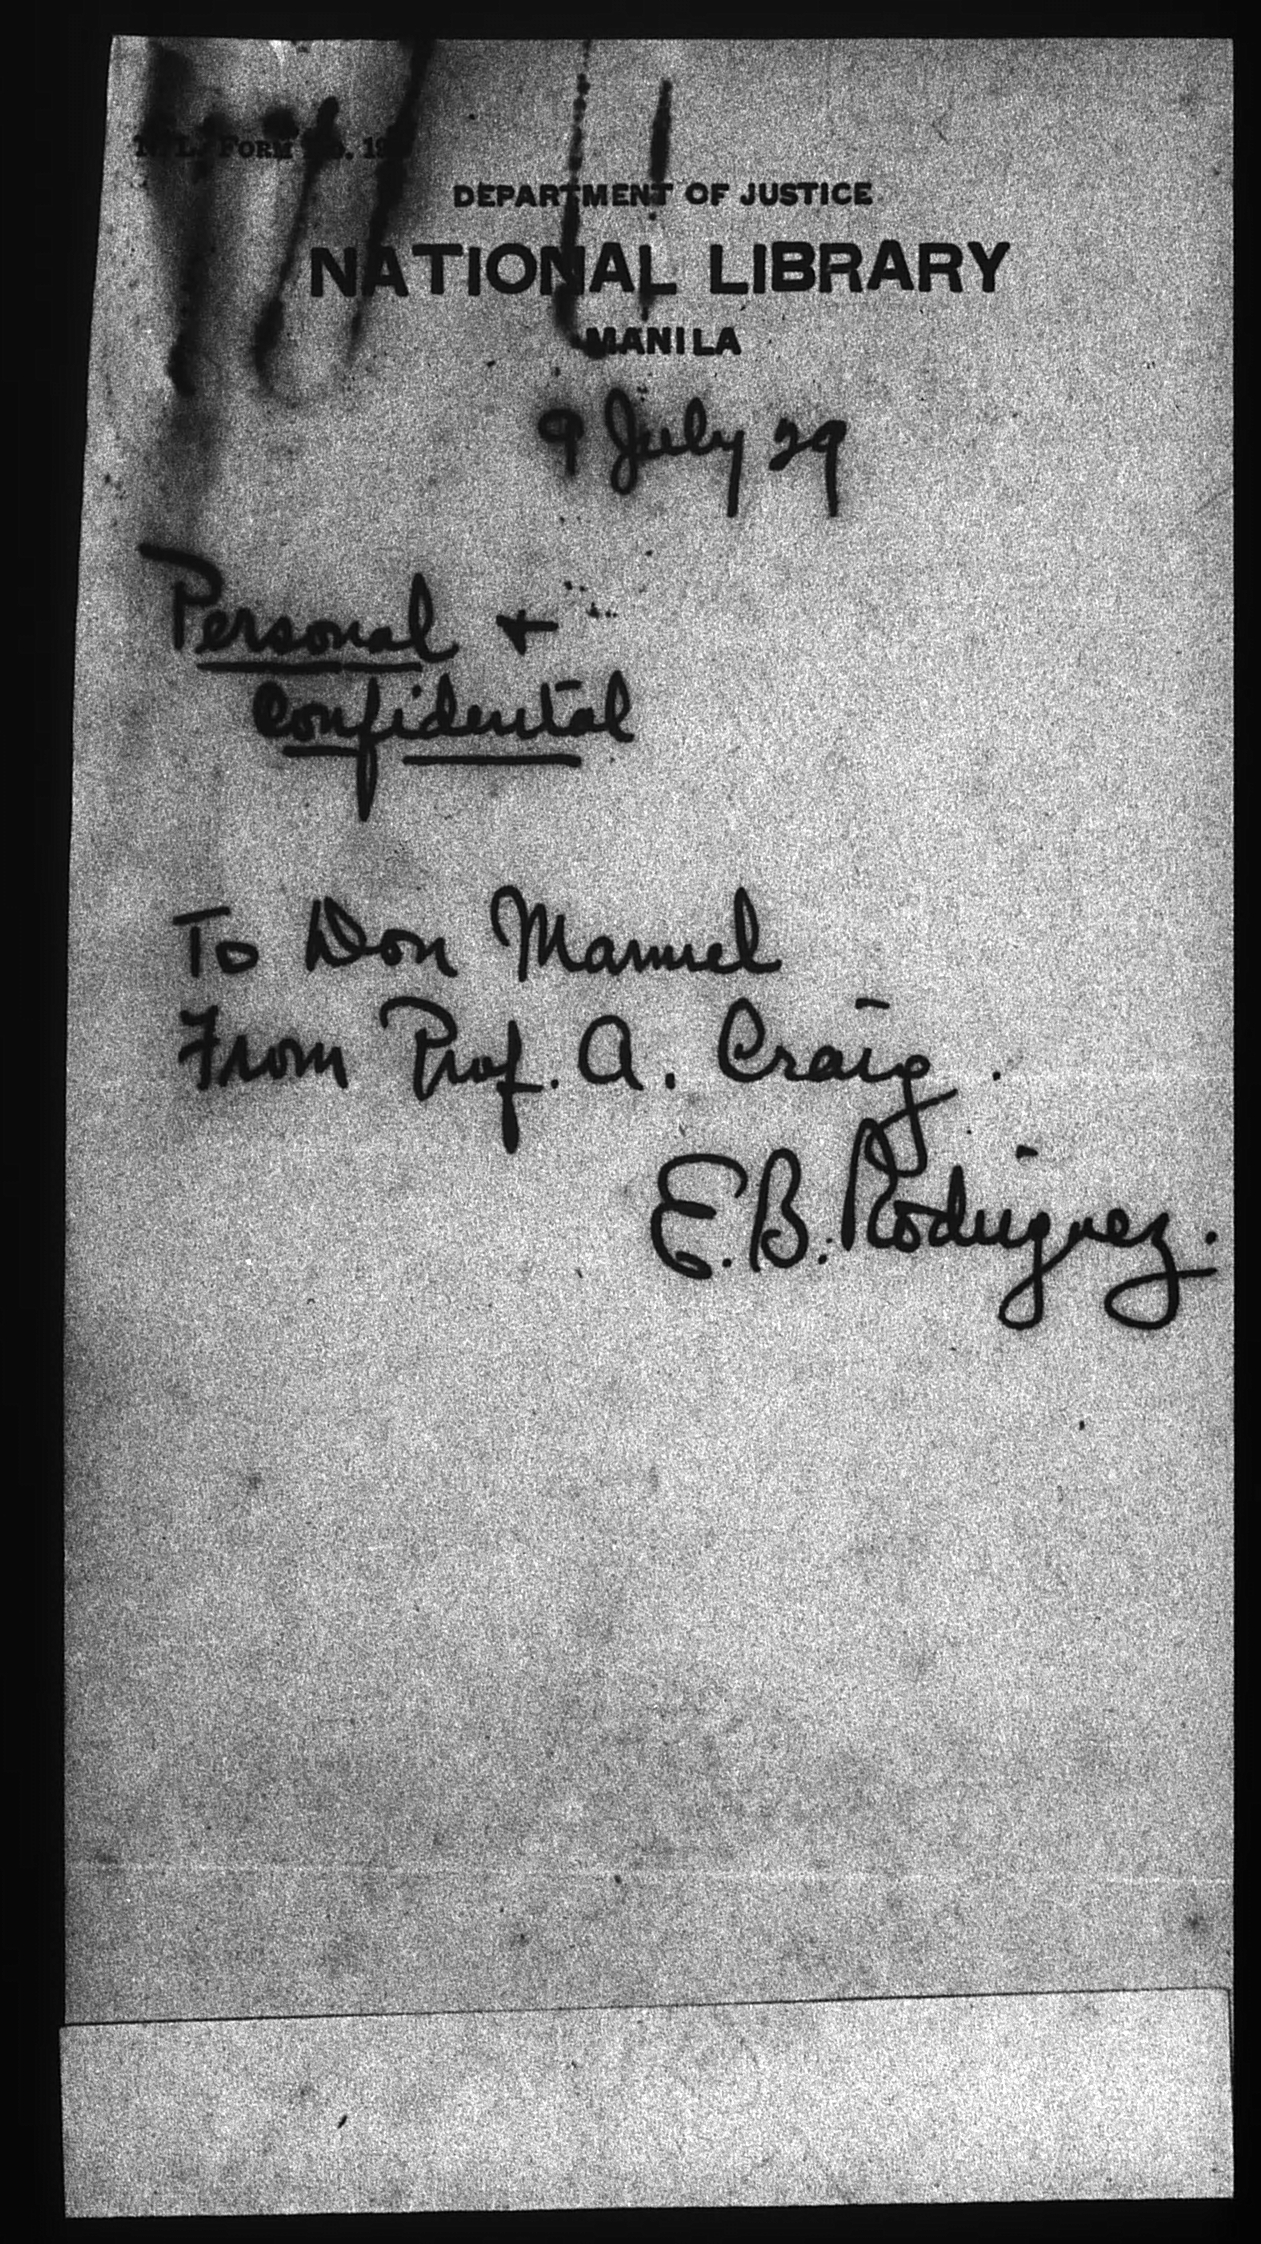 N. L. FORM No.
DEPARTMENT OF JUSTICE
NATIONAL LIBRARY
MANILA
9 July 29
Personal +
Confidental
To Don Manuel
From Prof. A. Craig.
E. B. Rodriguez.